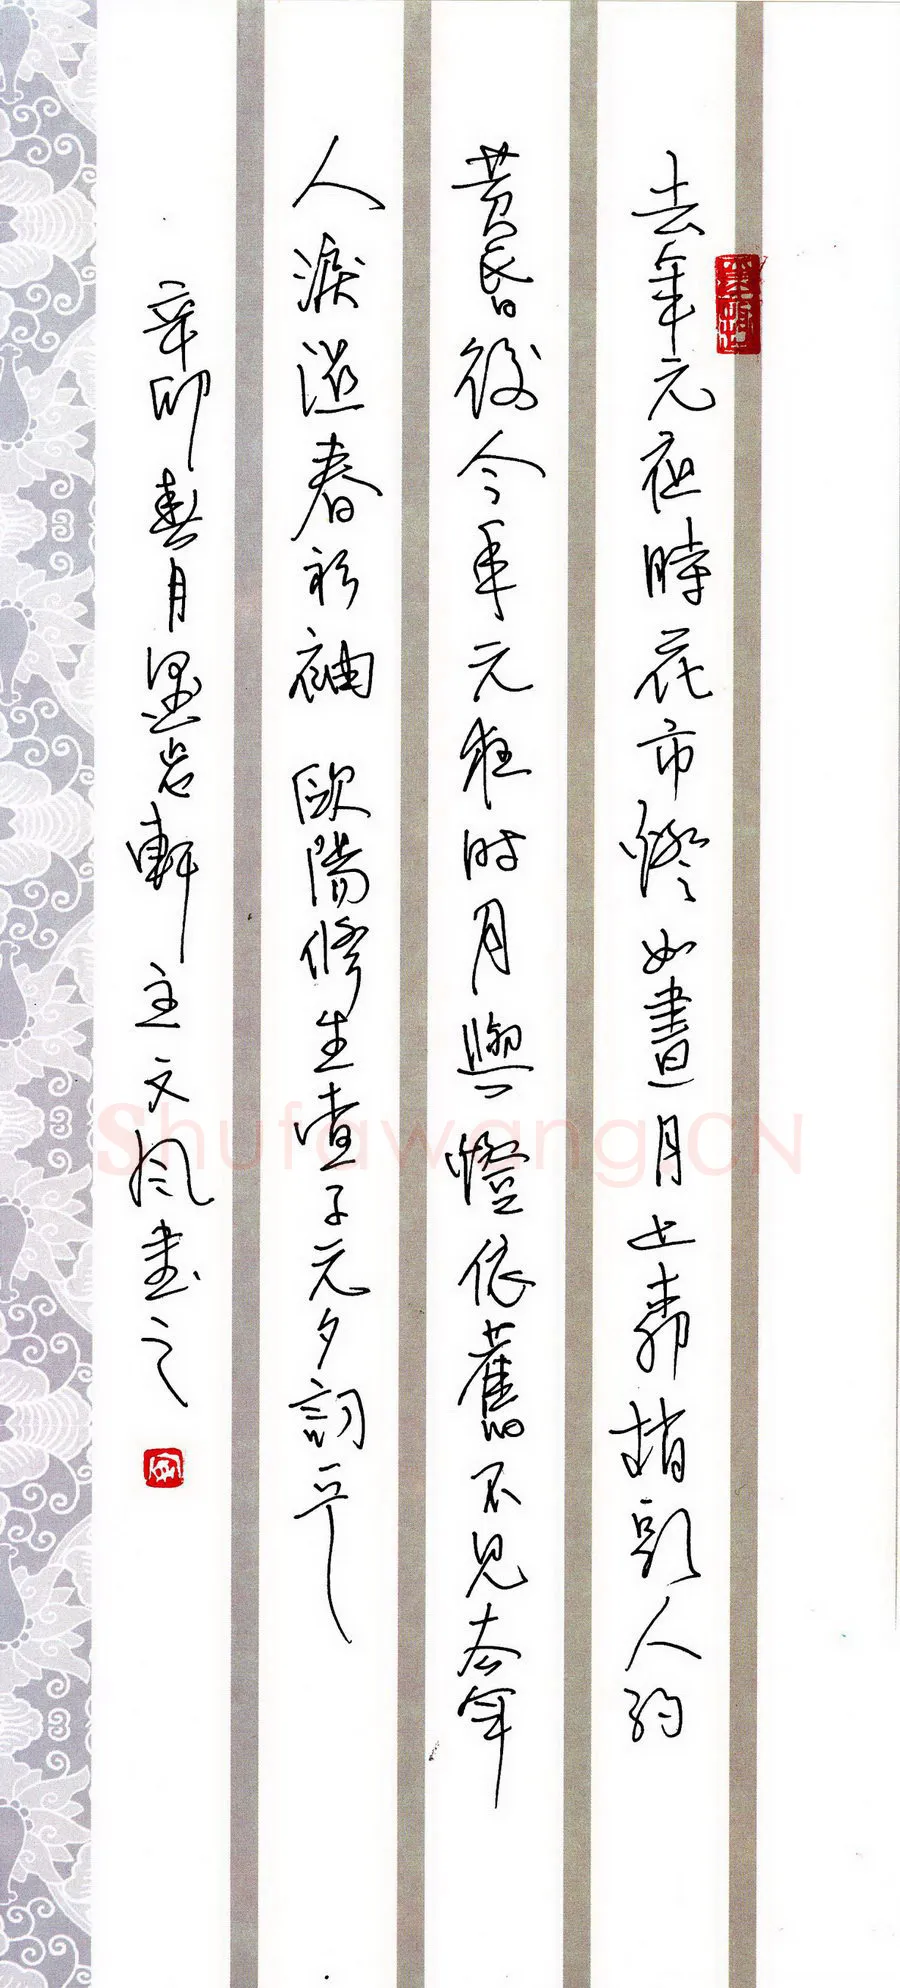 去年元夜時花市燈如晝月上柳梢頭人約
黃昏後今年元夜时月與燈依舊不見去年
人淚滿春衫袖 歐陽修生查子元夕詞一首
辛卯春月墨岩軒主文風書之
Shufawang.CN